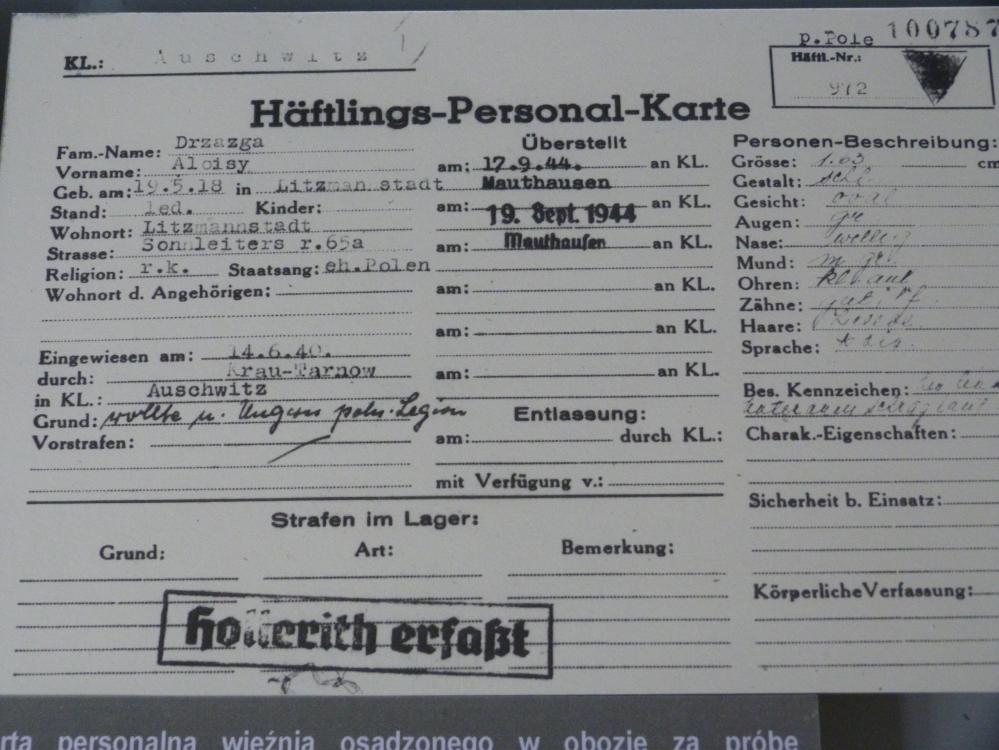 p.Pole 100787
KL.: Auschwitz
Häftl.-Nr.:
972
Häftlings-Personal-Karte
Fam.-Name: Drzazga
Vorname: Aloisy
Geb. am: 19.5.18 in Litzmannstadt
Stand: led. Kinder:
Wohnort: Litzmannstadt
Strasse: Sonnleiters r.65a
Religion: r.k. Staatsang: eh.Polen
Wohnort d. Angehörigen:
Eingewiesen am: 14.6.40.
durch: Krau-Tarnow
in KL.: Auschwitz
Grund: wollte n. Ungarn poln. Legion
Vorstrafen:
Überstellt
am: 17.9.44. an KL.
Mauthausen
am: 19. Sept. 1944 an KL.
am: Mauthausen an KL.
am: an KL.
am: an KL.
am: an KL.
Entlassung:
am: durch KL.:
mit Verfügung v.:
Personen-Beschreibung:
Grösse: cm
Gestalt:
Gesicht: oval
Augen:
Nase:
Mund:
Ohren:
Zähne:
Haare:
Sprache:
Bes. Kennzeichen:
Charak.-Eigenschaften:
Sicherheit b. Einsatz:
Körperliche Verfassung:
Strafen im Lager:
Grund: Art: Bemerkung:
Hollerith erfaßt
rta personalna więźnia osadzonego w obozie za próbę